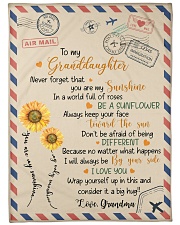 AIR MAIL
To my
Granddaughter
Never forget that
you are my Sunshine
In a world full of roses
BE A SUNFLOWER
Always keep your face
toward the sun
Don't be afraid of being
DIFFERENT
Because no matter what happens
I will always be By your side
I LOVE YOU
Wrap yourself up in this and
consider it a big hug!
Love, Grandma
You are my sunshine